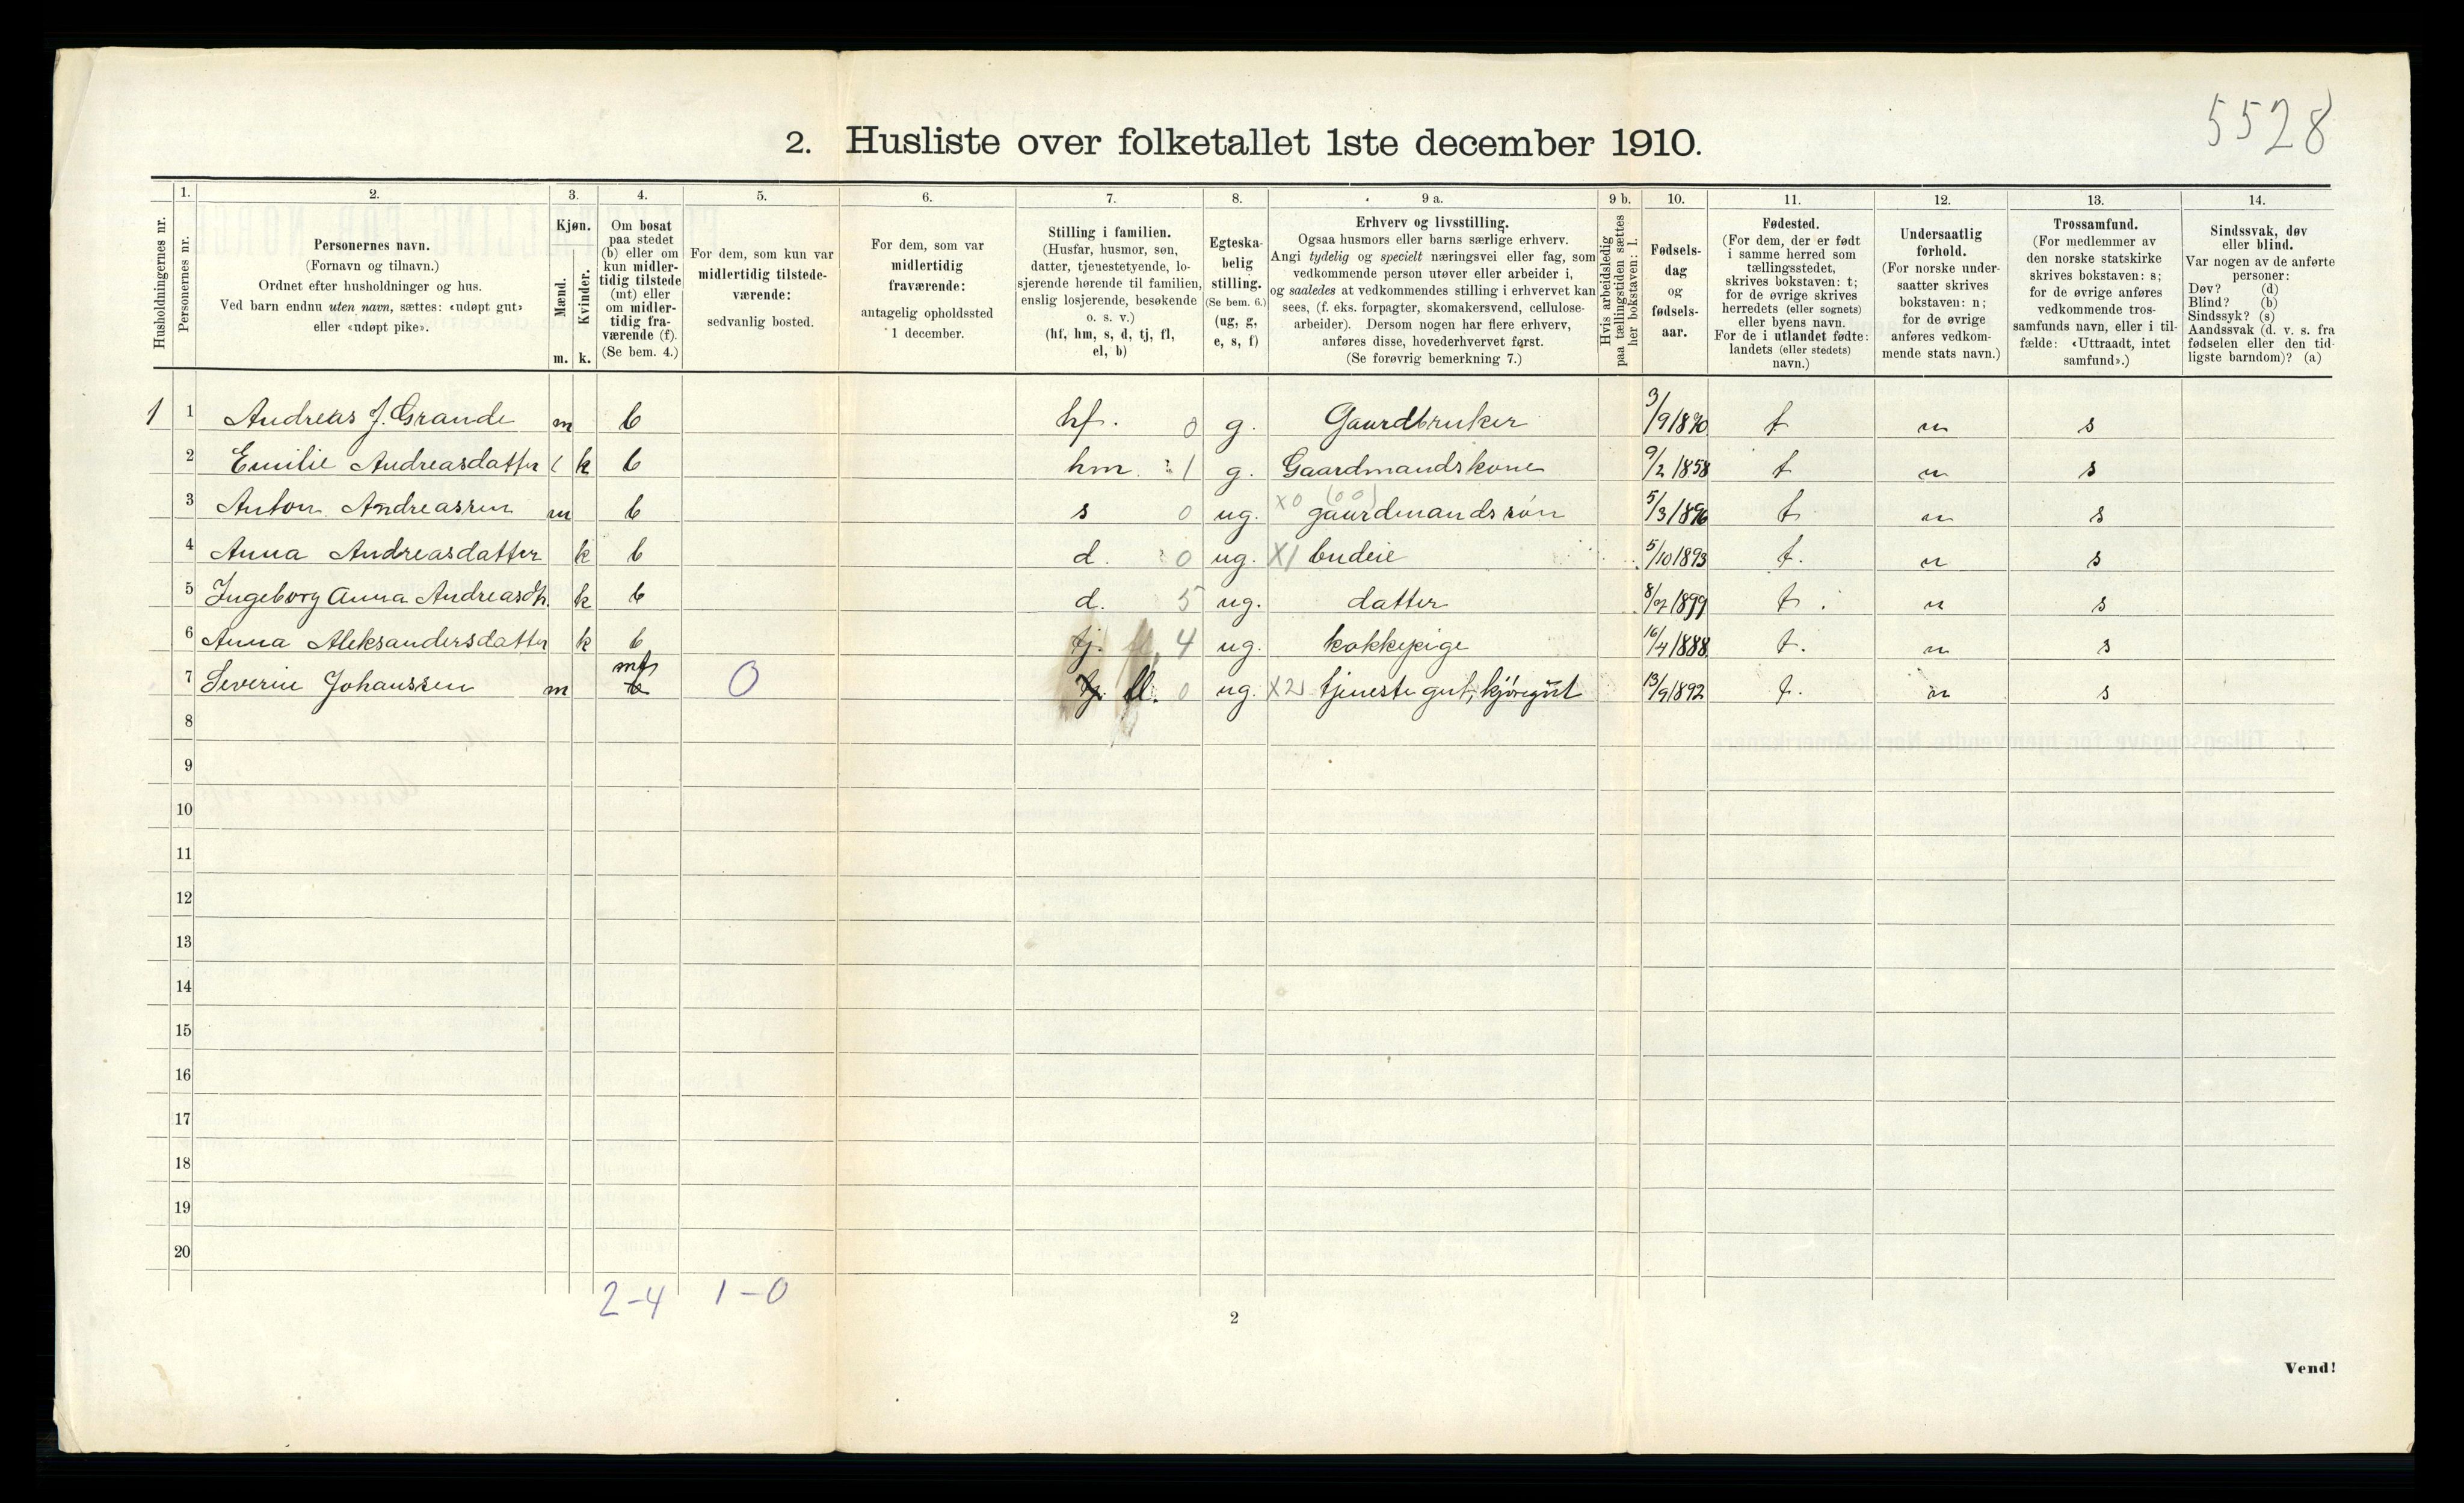 5528
2. Husliste over folketallet 1ste december 1910.
Husholdningernes nr.
1.
Personernes nr.
2.
Personernes navn.
(Fornavn og tilnavn.)
Ordnet efter husholdninger og hus.
Ved barn endnu uten navn, sættes: «udøpt gut»
eller «udøpt pike».
3.
Kjøn.
Mænd.
Kvinder.
m. k.
4.
Om bosat
paa stedet
(b) eller om
kun midler-
tidig tilstede
(mt) eller
om midler-
tidig fra-
værende (f).
(Se bem. 4.)
5.
For dem, som kun var
midlertidig tilstede-
værende:
sedvanlig bosted.
6.
For dem, som var
midlertidig
fraværende:
antagelig opholdssted
1 december.
7.
Stilling i familien.
(Husfar, husmor, søn,
datter, tjenestetyende, lo-
sjerende hørende til familien,
enslig losjerende, besøkende
o. s. v.)
(hf, hm, s, d, tj, fl,
el, b)
8.
Egteska-
belig
stilling.
(Se bem. 6.)
(ug, g,
e, s, f)
9 a.
Erhverv og livsstilling.
Ogsaa husmors eller barns særlige erhverv.
Angi tydelig og specielt næringsvei eller fag, som
vedkommende person utøver eller arbeider i,
og saaledes at vedkommendes stilling i erhvervet kan
sees, (f. eks. forpagter, skomakersvend, cellulose-
arbeider). Dersom nogen har flere erhverv,
anføres disse, hovederhvervet først.
(Se forøvrig bemerkning 7.)
9 b.
Hvis arbeidsledig
paa tællingstiden sættes
her bokstaven: l.
10.
Fødsels-
dag
og
fødsels-
aar.
11.
Fødested.
(For dem, der er født
i samme herred som
tællingsstedet,
skrives bokstaven: t;
for de øvrige skrives
herredets (eller sognets)
eller byens navn.
For de i utlandet fødte:
landets (eller stedets)
navn.)
12.
Undersaatlig
forhold.
(For norske under-
saatter skrives
bokstaven: n;
for de øvrige
anføres vedkom-
mende stats navn.)
13.
Trossamfund.
(For medlemmer av
den norske statskirke
skrives bokstaven: s;
for de øvrige anføres
vedkommende tros-
samfunds navn, eller i til-
fælde: «Uttraadt, intet
samfund».)
14.
Sindssvak, døv
eller blind.
Var nogen av de anførte
personer:
Døv? (d)
Blind? (b)
Sindssyk? (s)
Aandssvak (d. v. s. fra
fødselen eller den tid-
ligste barndom)? (a)
1 1 Andreas J. Grande m b hf. 0 g. Gaardbruker 3/9 18 t n s
2 Emilie Andreasdatter k b hm. 1 g. Gaardmandskone 9/2 1858 t n s
3 Anton Andreassen m b s 0 ug. X0 (00) gaardmandssøn 5/3 1896 t n s
4 Anna Andreasdatter k b d. 0 ug. X1 budeie 5/10 1893 t. n s
5 Ingeborg Anna Andreasdt. k b d. 5 ug. datter 8/2 1899 t. n s
6 Anna Aleksandersdatter k b tj. fl. 4 ug. kokkepige 16/4 1888 t. n s
7 Severin Johanssen m b mt 0 tj. fl. 0 ug. X2 tjenestegut, kjøregut 13/9 1892 t. n s
8
9
10
11
12
13
14
15
16
17
18
19
20
2-4 1-0
2
Vend!